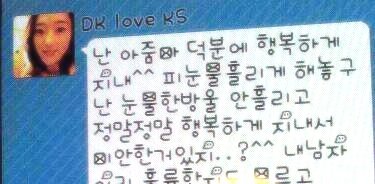 DK love KS
난 아줌마 덕분에 행복하게
지내^^ 피눈물흘리게 해놓구
난 눈물한방울 안흘리고
정말정말 행복하게 지내서
미안한거있지..? ^^ 내남자